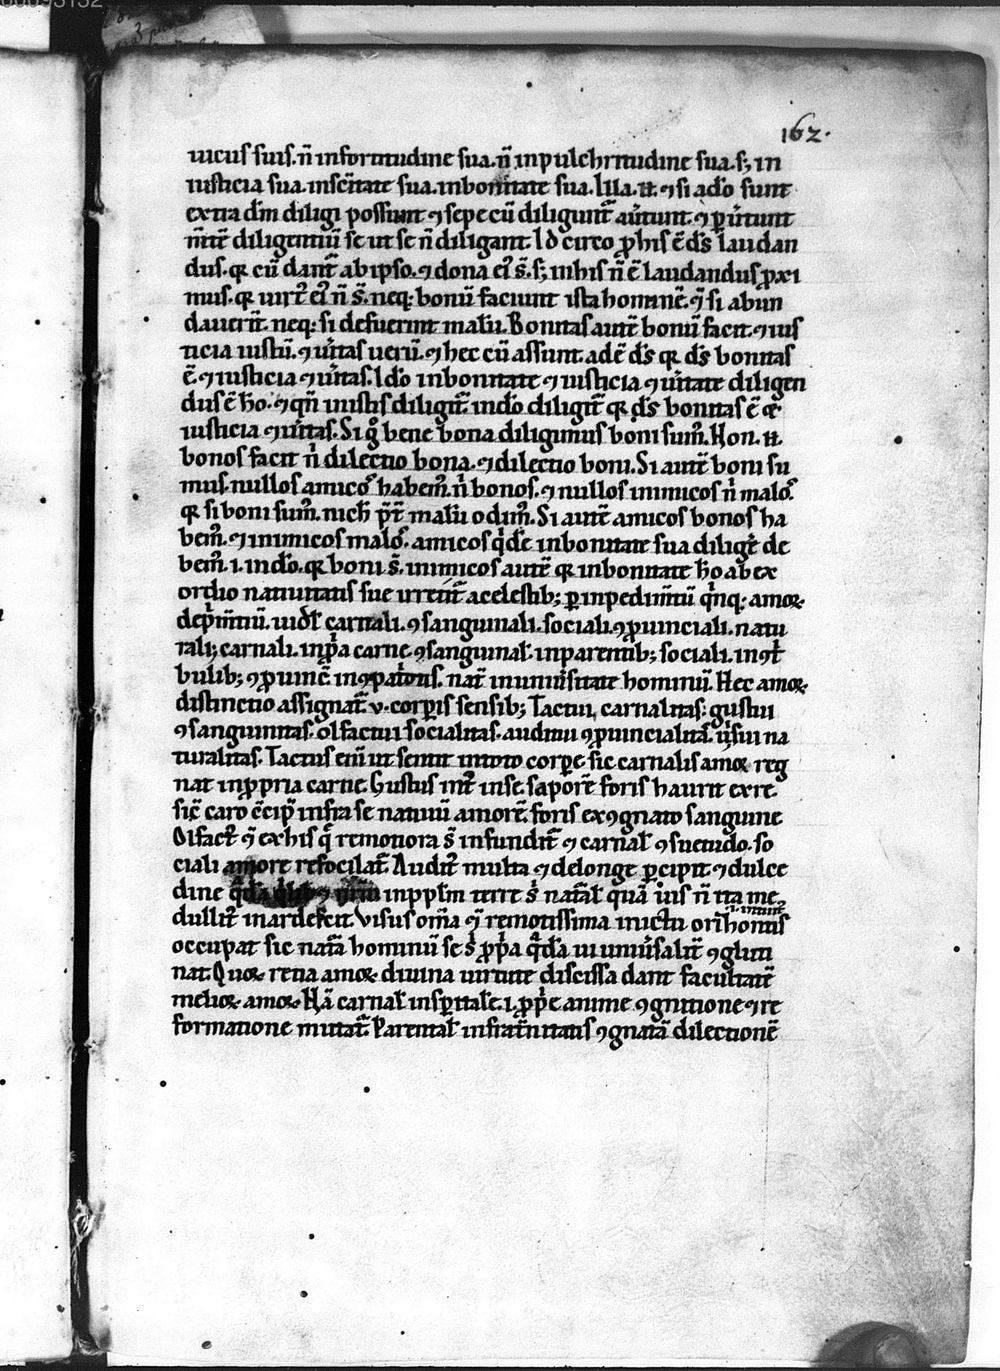 162.
uicus suis. n̄ infortitudine sua. n̄ inpulchritudine sua. s; in
iusticia sua. insc̄itate sua. inbonitate sua. Illa. n̄. ⁊ si adō sunt
extra dm̄ diligi possunt ⁊ sepe cū diligunt̄ au̾tunt. ⁊ ꝑu̾tunt
m̄tē diligentiū se ut se n̄ diligant. Id circo ꝓ his ē ds̄ laudan
dus. qꝛ cū dant̄ ab ipso. ⁊ dona ei᾿ s̄. s; in his n̄ ē laudandus ꝓxi
mus. qꝛ uirt᾿ ei᾿ n̄ s̄. neq: bonū faciunt ista hominē. ⁊ si abun
dauerīt. neq: si defuerint malū. Bonitas autē bonū facit. ⁊ ius
ticia iustū. ⁊ ūitas uerū. ⁊ hec cū assunt. adē ds̄ qꝛ ds̄ bonitas
ē. ⁊ iusticia ⁊ ūitas. Idō inbonitate ⁊ iusticia ⁊ ūitate diligen
dus ē hō. ⁊ qn̄ inistis diligit̄. indō diligit̄ qꝛ ds̄ bonitas ē ⁊
iusticia ⁊ ūitas. Si gͦ bene bona diligimus boni sum᾿. Non. n̄.
bonos facit nͥ dilectio bona. ⁊ dilectio boni. Si autē boni su
mus. nullos amicos habem᾿. nͥ bonos. ⁊ nullos inimicos nͥ malos.
qꝛ si boni sum᾿. nich̄ p̄t̄ malū odim᾿. Si autē amicos bonos ha
bem᾿. ⁊ inimicos malos. amicos qͥdē inbonitate sua diligē de
bem᾿. i. indō. qꝛ boni s̄. inimicos autē qꝛ inbonitate hō ab ex
ordio natiuitatis sue irretit̄ a celestib; ꝑ inpedim̄tū qͥnq: amoꝝ
dep̄m̄tiū. uidꝫ carnali. ꝯsanguinali. sociali. ꝯꝓuinciali. natu
rali; carnali. inp̄a carne. ꝯsanguinal̄. inparentib; sociali. in ꝯt̄
bulib; ꝯꝓuinc̄ inꝯpat̾otis. nat̄ inuniu̾sitate hominū. Hec amoꝝ
distinctio assignat̄ .v. corꝑis sensib; Tactui carnalitas: gustui
ꝯsanguinitas. olfactui socialitas. auditui ꝯꝓuincialitas. uisui na
turalitas. Tactus enī ut sentit intoto corꝑe. sic carnalis amoꝛ reg
nat inꝓpria carne. Gustus int̾ inse saporē foris haurit ex re
sic̄ caro c̄cip̄ infra se natiuū amorē. foris ex ꝯgnato sanguine
Olfact᾿ ⁊ ex his qͥ remotiora s̄ infundit̄ ⁊ carnal̄ ꝯsuetudo. so
ciali amore refocilat̄. Audit᾿ multa ⁊ delonge ꝑcipit. ⁊ dulce
dine inpplm̄ terre sͥ natāl̄ quā uis n̄ ita me
dullit᾿ inardescit. Visus om̄a ⁊ remotissima inictu orihontis
occupat sic natā hominū se sͥ ꝓpͥa qͣdā uniuersalit̄ ꝯgluti
nat. Quoꝝ retia amoꝝ diuina uirtute discissa dant facultatē
melioꝝ amoꝝ. Nā carnal̄ inspͥtale. i. ꝓpͥe anime ꝯgnitione ⁊ re
formatione mutat̄. Parental̄ infrat̾nitatis ꝯgnatā dilectionē